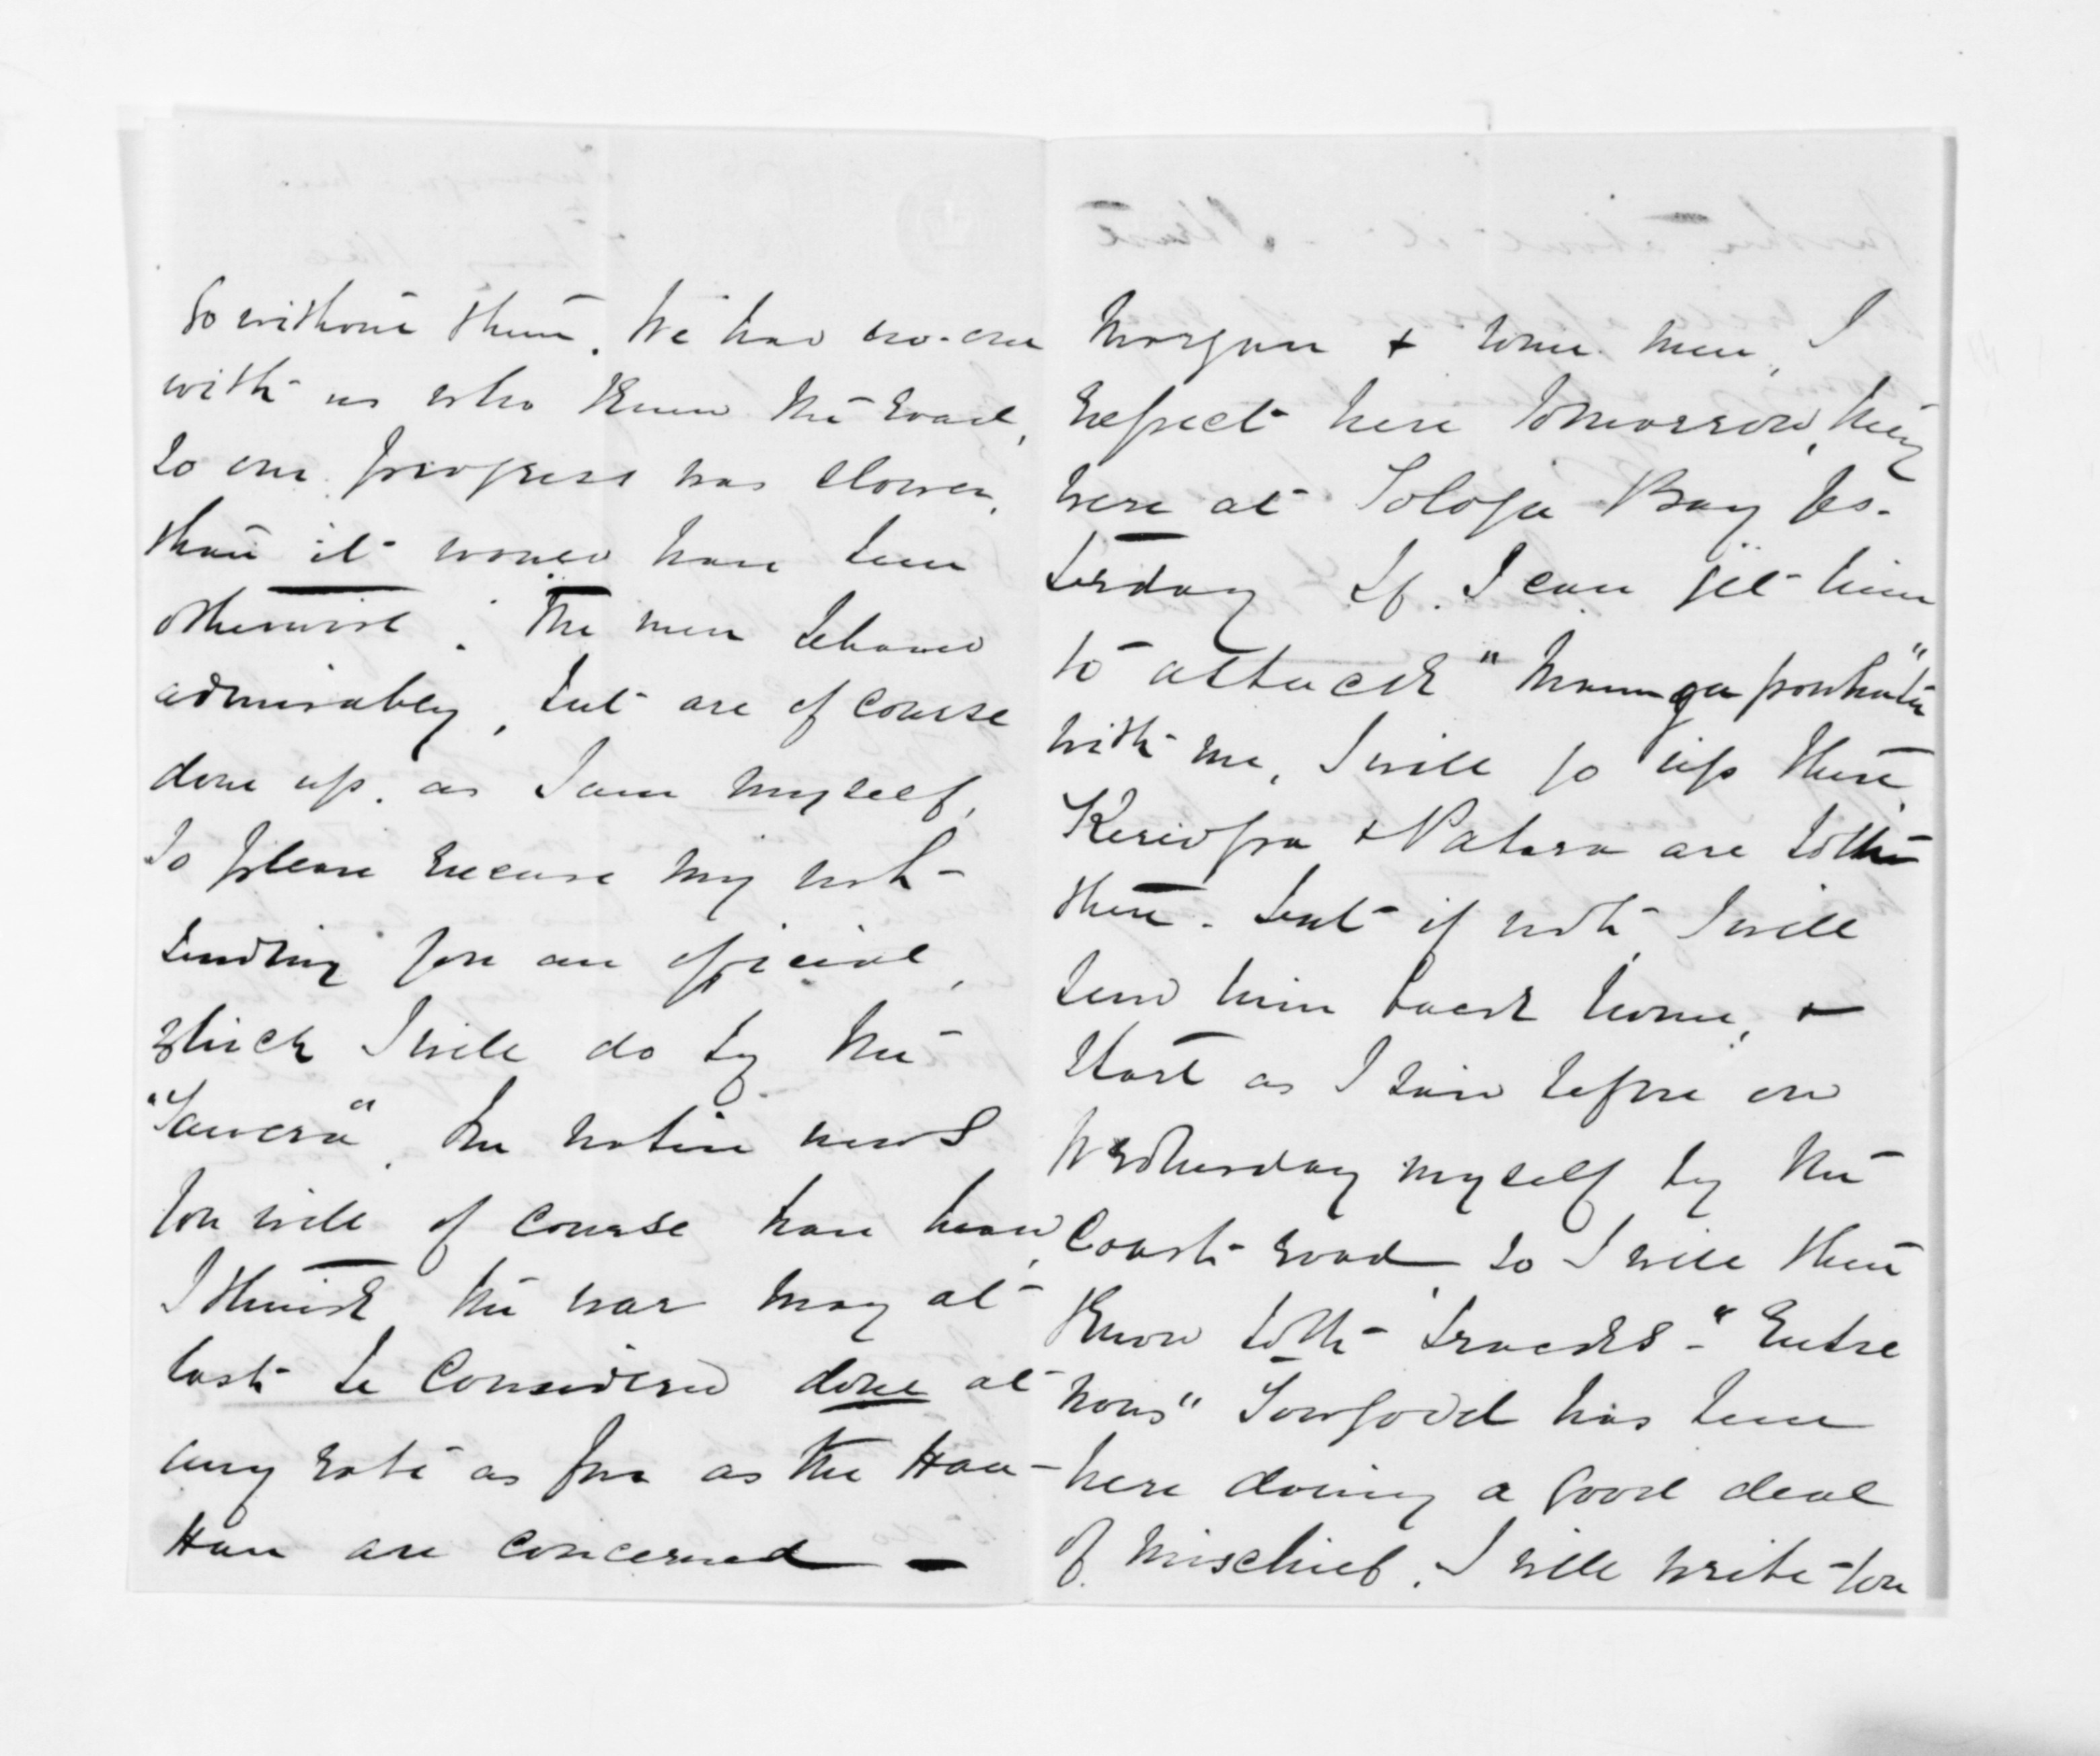 So without them. We had no-one
with us who knew the road,
so our progress was slower,
than it would have been
otherwise. The men behaved
admirably, but are of course
done up. as I am myself,
so please excuse my not-
sending you an official,
which I will do by the
"Tawera". The native news
you will of course have heard,
I think the war may at
last be considered done at
any rate as far as the Hau-
Hau are concerned —
Morgan & some men, I
expect here tomorrow, they
were at Tologa Bay yes-
terday If. I can get him
to attack "Maungapowhatu"
with me, I will go up there.
Kereopa & Patara are both
there. but if not, I will
send him back home, &
start as I said before on
Wednesday myself by the
Coast road, so I will then
know both tracks - "Entre
nous" Towgood has been
here doing a good deal
of mischief. I will write you